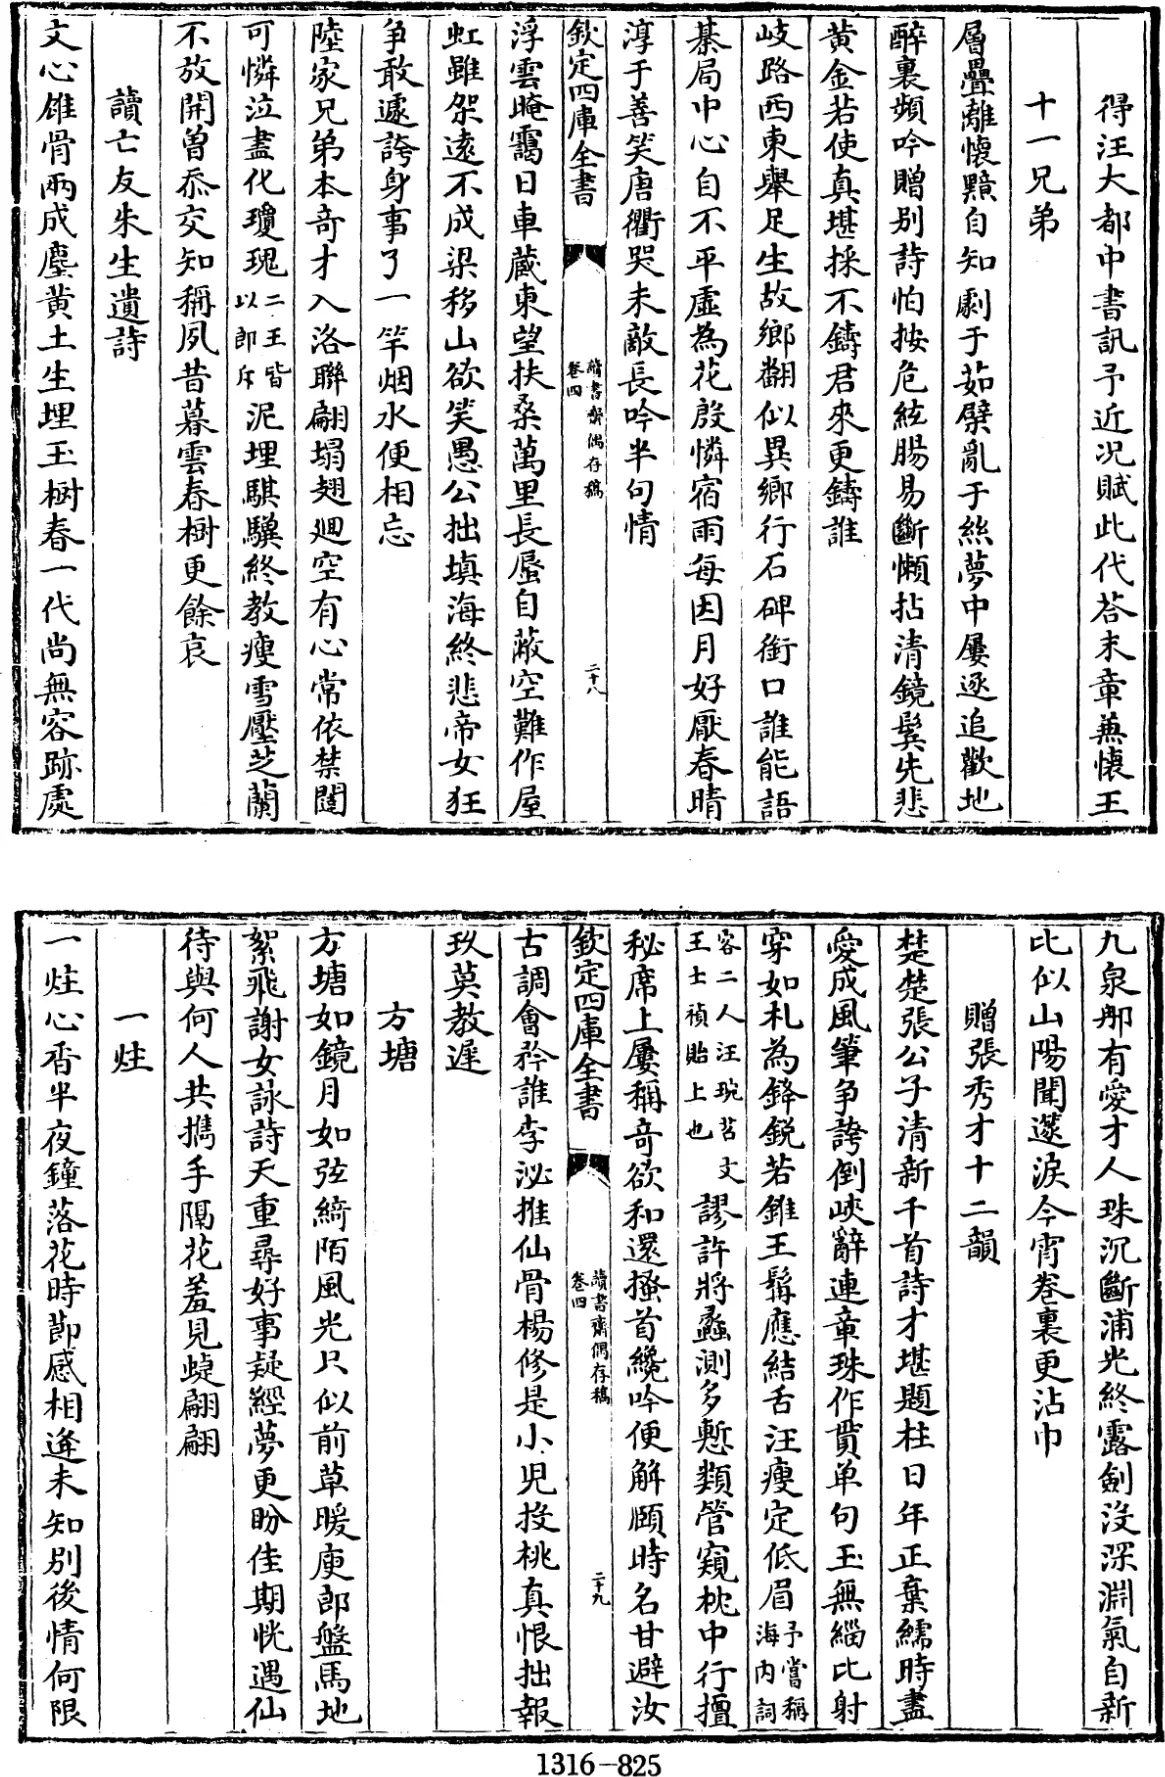 得汪大都中書訊予近况賦此代荅末章兼懐王
十一兄弟
層疊離懐黯自知劇于茹櫱亂于絲夢中屢逐追歡地
醉裏頻吟贈别詩怕按危絃腸易斷懶拈清鏡鬂先悲
黄金若使真堪採不鑄君來更鑄誰
岐路西東舉足生故鄉翻似異鄉行石碑銜口誰能語
棊局中心自不平虛為花殷憐宿雨每因月好厭春晴
淳于善笑唐衢哭未敵長吟半句情
欽定四庫全書
讀書齋偶存稿
卷四
二十八
浮雲晻靄日車蔵東望扶桑萬里長蜃自蔽空難作屋
虹雖架遠不成梁移山欲笑愚公拙填海終悲帝女狂
争敢遽誇身事了一竿烟水便相忘
陸家兄弟本竒才入洛聯翩塌翅廻空有心常依禁闥
可憐泣盡化瓊瑰二王皆以即斥泥埋騏驥終教瘦雪壓芝蘭
不放開曽忝交知稱夙昔暮雲春樹更餘哀
讀亡友朱生遺詩
文心雄骨兩成塵黄土生埋玉樹春一代尚無容跡處
九泉那有愛才人珠沉斷浦光終露劍没深淵氣自新
比似山陽聞邃淚今宵巻裏更沾巾
贈張秀才十二韻
楚楚張公子清新千首詩才堪題柱日年正棄繻時盡
愛成風筆争誇倒峽辭連章珠作貫单句玉無緇比射
穿如札為鋒鋭若錐王髯應結舌汪瘦定低眉予嘗稱海内詞
客二人汪琬苕文王士禎貽上也謬許將蠡測多慙類管窺枕中行擅
秘席上屢稱竒欲和還搔首纔吟便解頤時名甘避汝
欽定四庫全書
讀書齋偶存稿
卷四
二十九
古調會矜誰李泌推仙骨楊修是小兒投桃真恨拙報
玖莫教遲
方塘
方塘如鏡月如弦綺陌風光只似前草暖庾郎盤馬地
絮飛謝女詠詩天重尋好事疑經夢更盼佳期恍遇仙
待與何人共擕手隔花羞見蜨翩翩
一炷
一炷心香半夜鐘落花時節感相逄未知别後情何限
1316-825